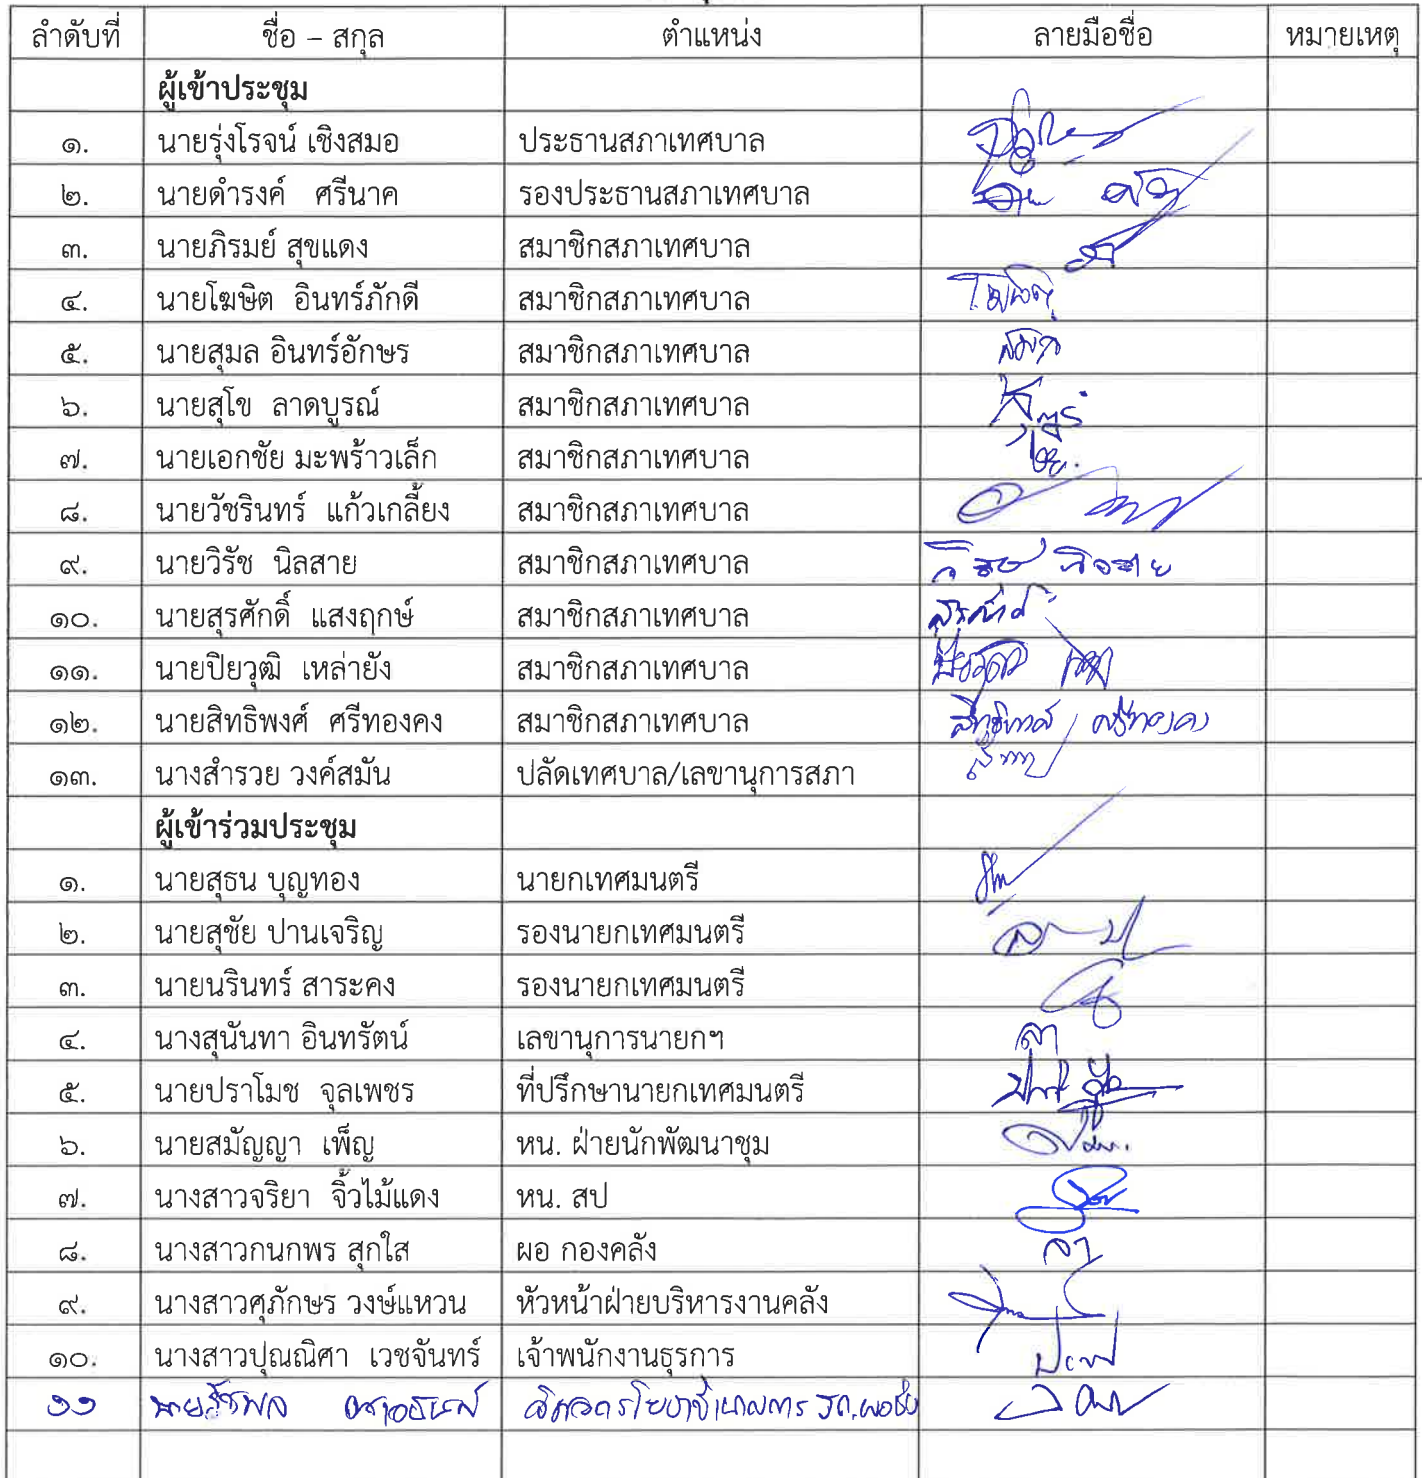 ลำดับที่ ชื่อ – สกุล ตำแหน่ง ลายมือชื่อ หมายเหตุ
ผู้เข้าประชุม
๑. นายรุ่งโรจน์ เชิงสมอ ประธานสภาเทศบาล
๒. นายดำรงค์ ศรีนาค รองประธานสภาเทศบาล
๓. นายภิรมย์ สุขแดง สมาชิกสภาเทศบาล
๔. นายโฆษิต อินทร์ภักดี สมาชิกสภาเทศบาล
๕. นายสุมล อินทร์อักษร สมาชิกสภาเทศบาล
๖. นายสุโข ลาดบูรณ์ สมาชิกสภาเทศบาล
๗. นายเอกชัย มะพร้าวเล็ก สมาชิกสภาเทศบาล
๘. นายวัชรินทร์ แก้วเกลี้ยง สมาชิกสภาเทศบาล
๙. นายวิรัช นิลสาย สมาชิกสภาเทศบาล
๑๐. นายสุรศักดิ์ แสงฤกษ์ สมาชิกสภาเทศบาล
๑๑. นายปิยวุฒิ เหล่ายัง สมาชิกสภาเทศบาล
๑๒. นายสิทธิพงศ์ ศรีทองคง สมาชิกสภาเทศบาล สิทธิพงศ์ ศรีทองคง
๑๓. นางสำรวย วงค์สมัน ปลัดเทศบาล/เลขานุการสภา
ผู้เข้าร่วมประชุม
๑. นายสุธน บุญทอง นายกเทศมนตรี
๒. นายสุชัย ปานเจริญ รองนายกเทศมนตรี
๓. นายนรินทร์ สาระคง รองนายกเทศมนตรี
๔. นางสุนันทา อินทรัตน์ เลขานุการนายกฯ ลา
๕. นายปราโมช จุลเพชร ที่ปรึกษานายกเทศมนตรี
๖. นายสมัญญา เพ็ญ หน. ฝ่ายนักพัฒนาชุม
๗. นางสาวจริยา จิ้วไม้แดง หน. สป
๘. นางสาวกนกพร สุกใส ผอ กองคลัง ลา
๙. นางสาวศุภักษร วงษ์แหวน หัวหน้าฝ่ายบริหารงานคลัง
๑๐. นางสาวปุณณิศา เวชจันทร์ เจ้าพนักงานธุรการ
๑๑